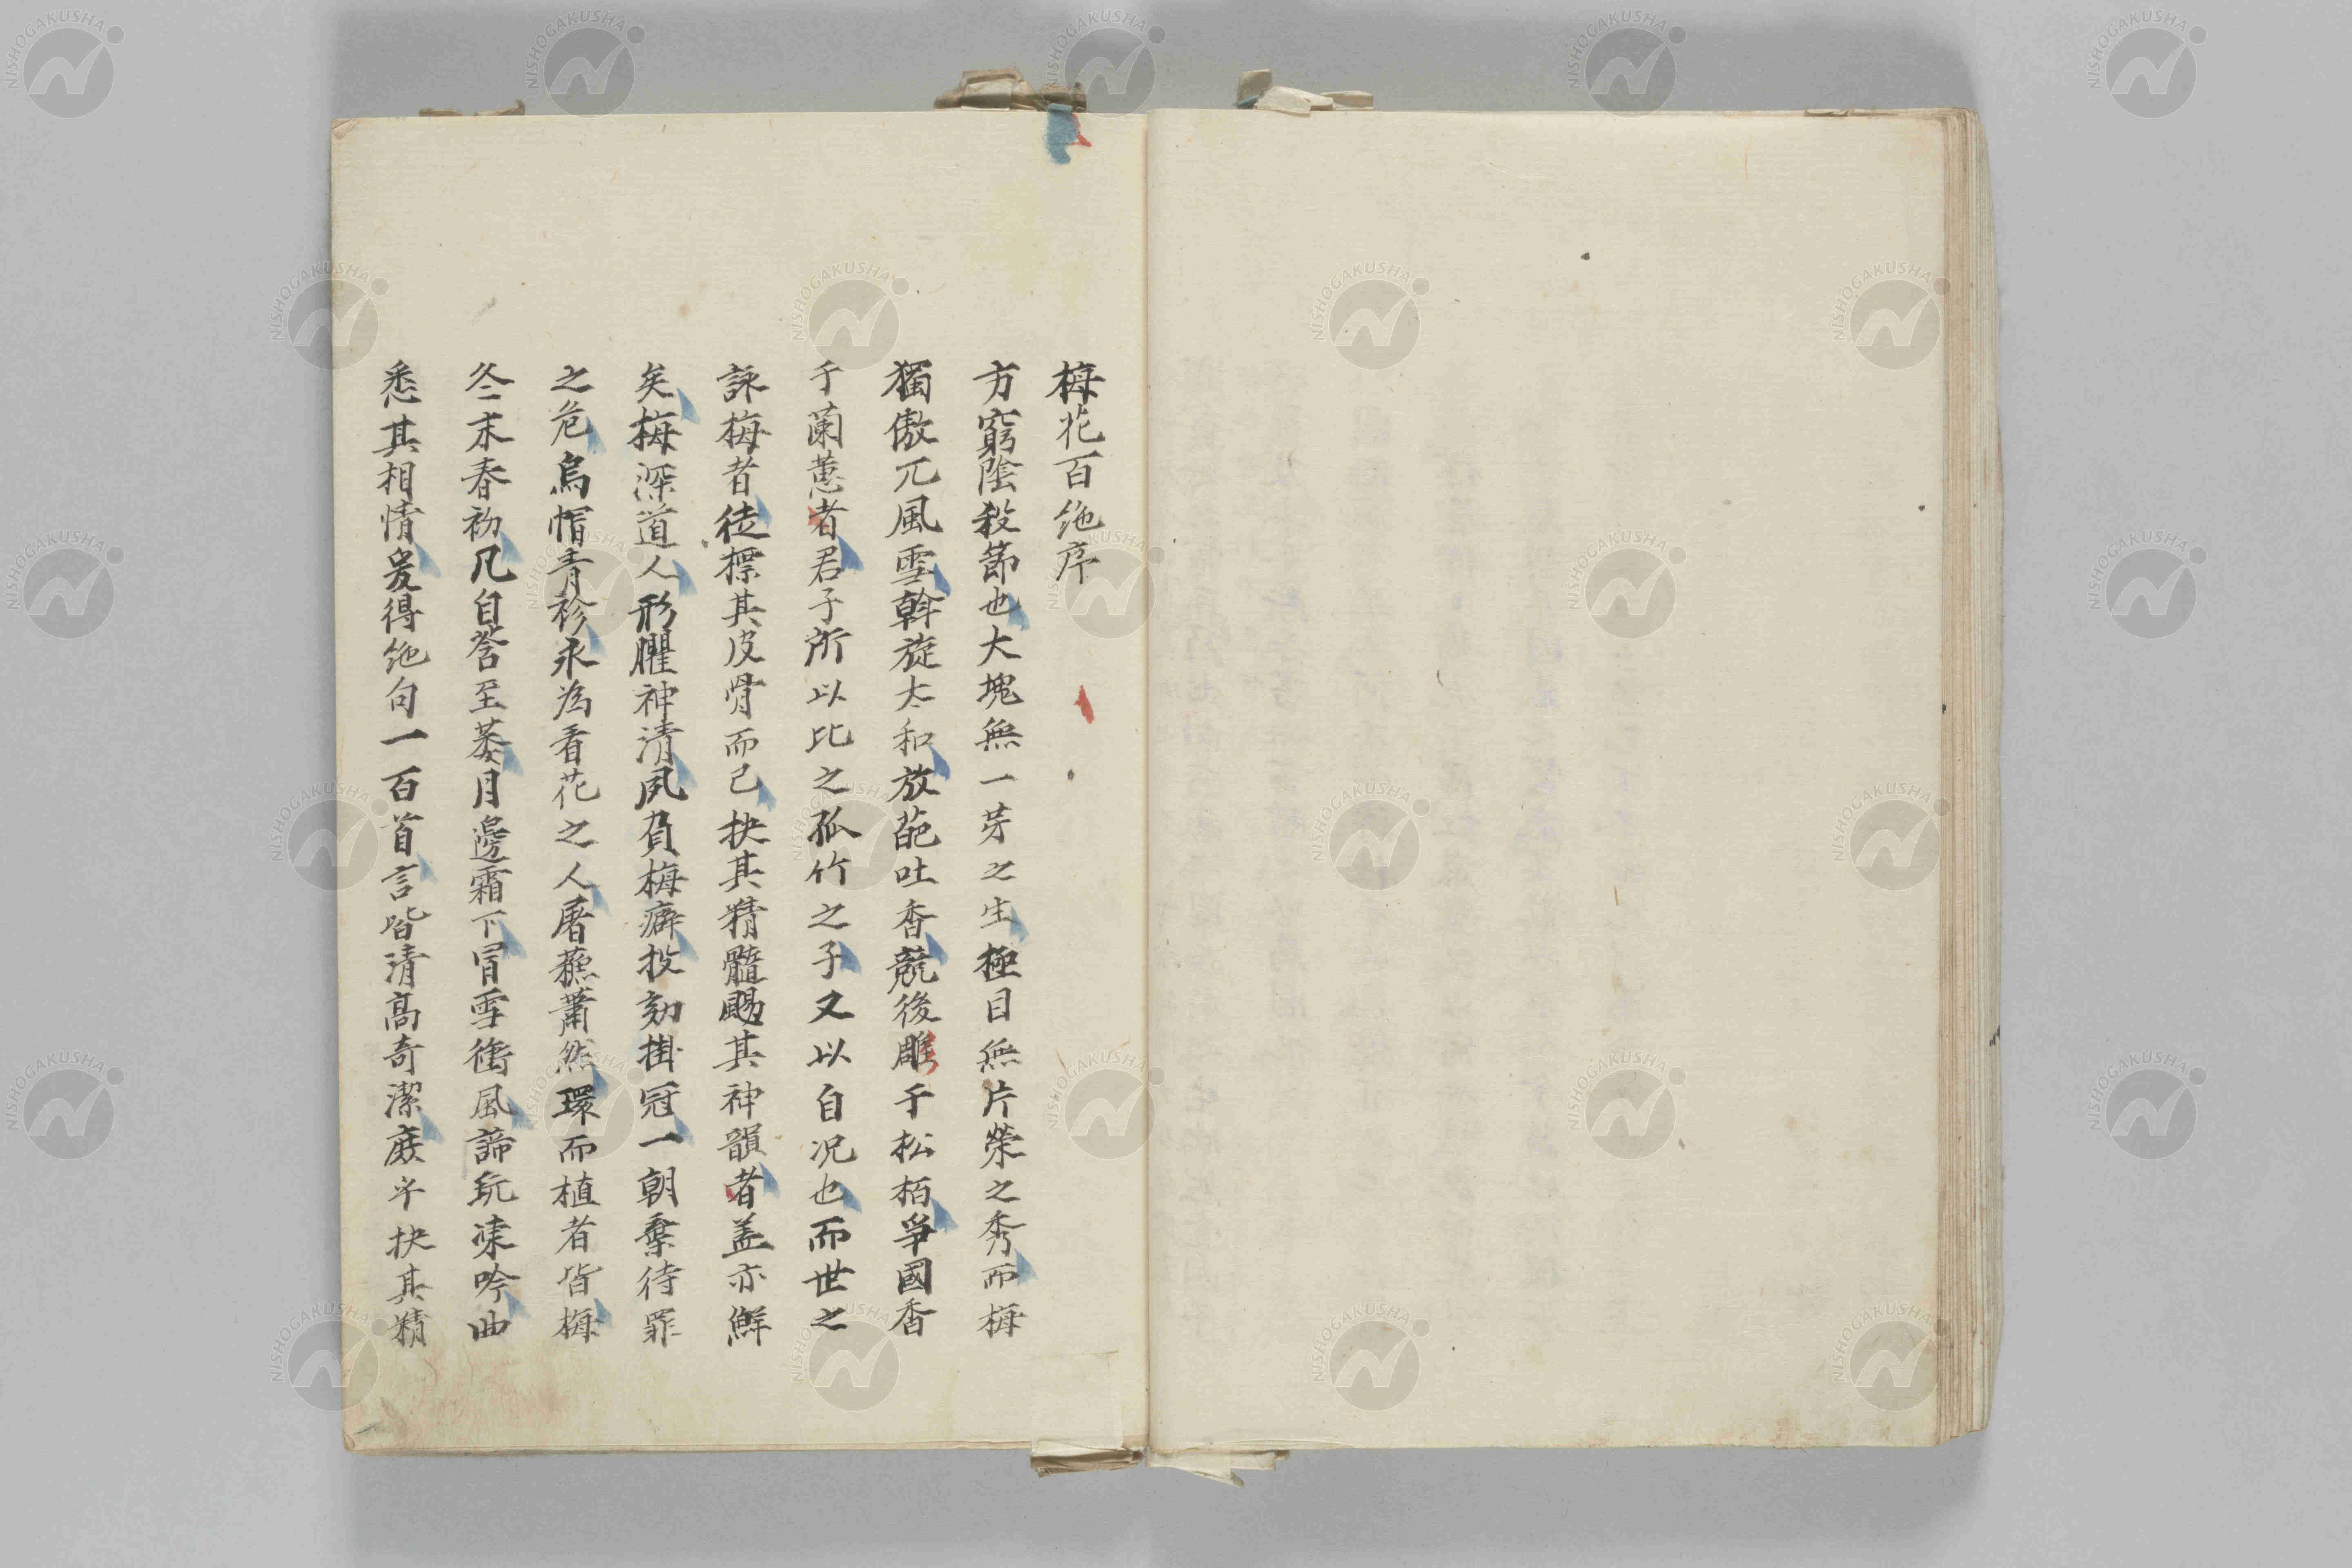 梅花百絶序
方窮陰殺節也大塊無一芽之生極目無片榮之秀而梅
獨傲兀風雪斡旋太和放葩吐香競後雕于松栢爭國香
于蘭蕙者君子所以比之孤竹之子又以自况也而世之
詠梅者徒摽其皮骨而已抉其精髓颺其神韻者盖亦鮮
矣梅深道人形臞神清夙負梅癖投劾掛冠一朝棄待罪
之危烏帽青衫永為看花之人屠蘓蕭然環而植者皆梅
冬末春初凡自莟至蔞月邊霜下冐雪衝風諦玩凍吟曲
悉其相情爰得絶句一百首言皆清高奇潔庶乎抉其精
NISHOGAKUSHA